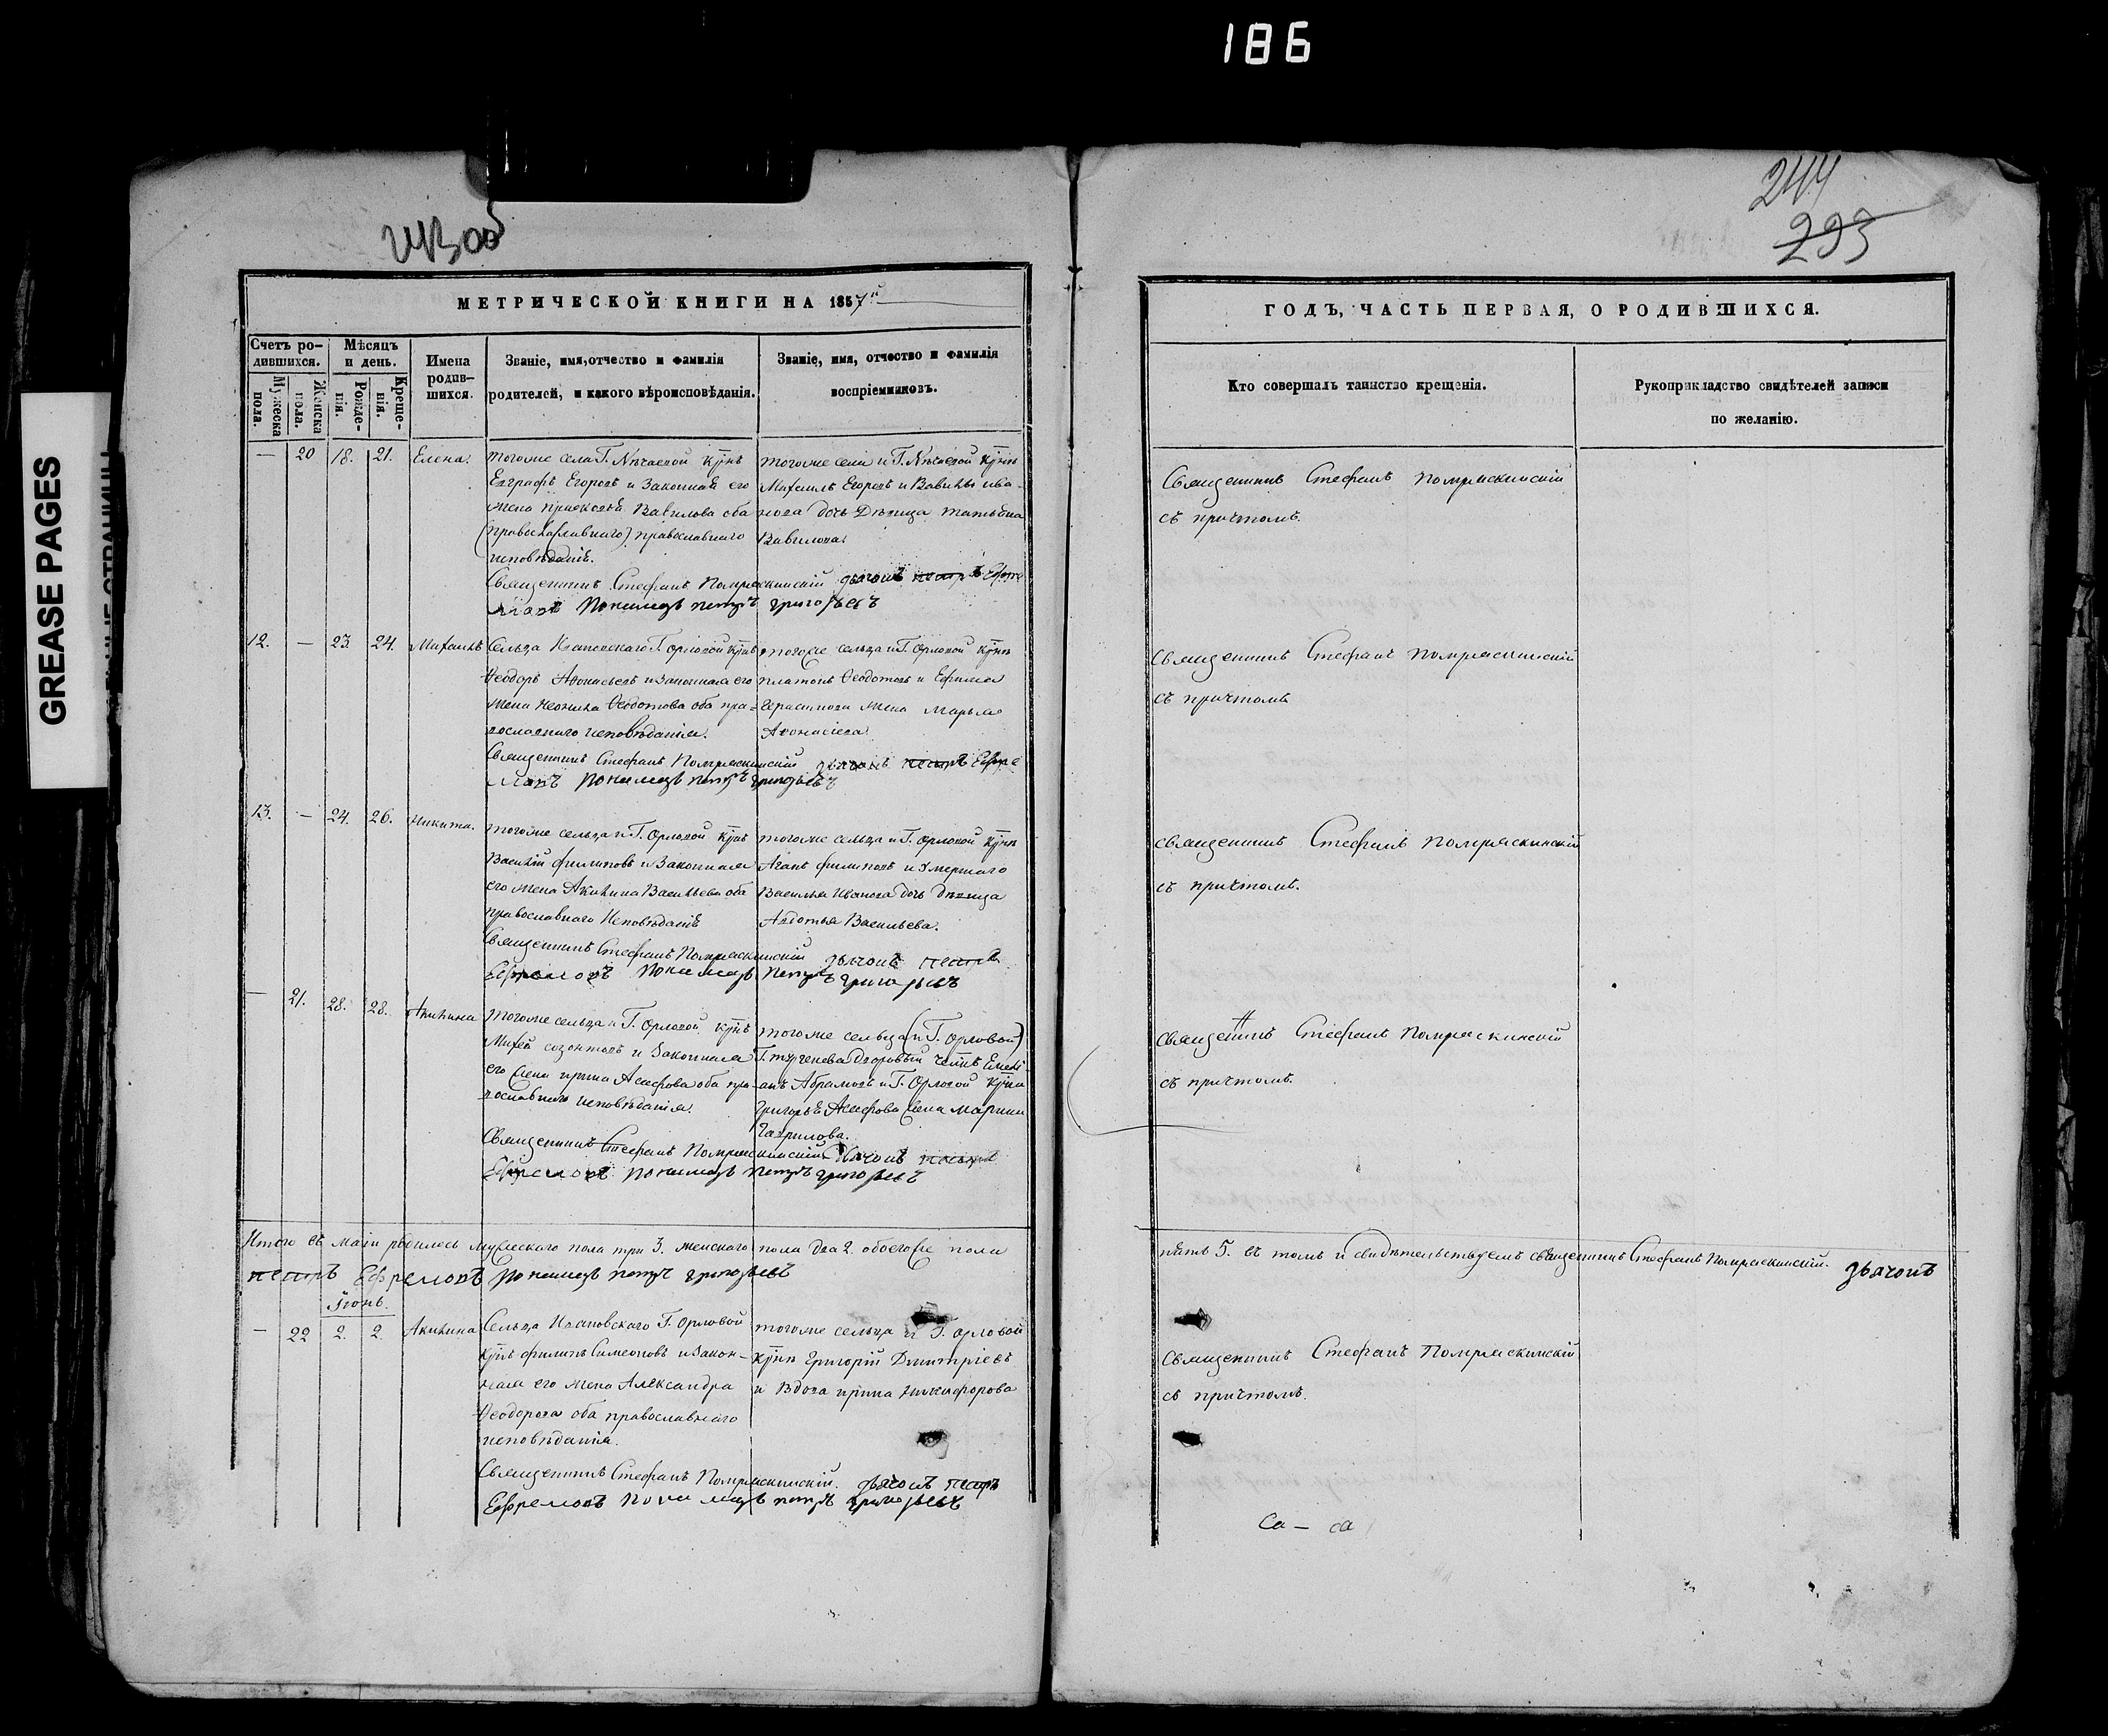 186
244
293
GREASE PAGES
МЕТРИЧЕСКОЙ КНИГИ НА 1857й
Счетъ ро-
дившихся.
Мужеска
пола.
Женска
пола.
Мѣсяцъ
и день.
Рожде-
нія.
Креще-
нія.
Имена
родив-
шихся.
Званіе, имя, отчество и фамилія
родителей, и какого вѣроисповѣданія.
Званіе, имя, отчество и фамилія
воспріемниковъ.
— 20 18. 21. Елена.
тогоже села Г. Нѣчаевой
Евграфъ Егоровъ и Законная его
жена Вавилова оба
(православнаго) православнаго
исповѣданія.
тогоже села и Г. Нѣчаевой
Михаилъ Егоровъ и Вавилы Ива-
нова дочь Дѣвица Татьяна
Вавилова.
Священникъ Стефанъ дьячокъ петръ Ефре
мовъ Пономарь петръ григорьевъ
12. — 23. 24. Михаилъ
Сельца Г. Орловой
Ѳеодоръ и законная его
жена Ѳеодотова оба пра-
вославнаго исповѣданія.
тогоже сельца и Г. Орловой
платонъ Ѳеодотовъ и Ефима
Герасимова жена Марья
Священникъ Стефанъ дьячокъ петръ Ефре
мовъ Пономарь петръ григорьевъ
13. — 24. 26. Никита.
тогоже сельца и Г. Орловой
Василій филиповъ и Законная
его жена Акилина Васильева оба
православнаго Исповѣданія
тогоже сельца и Г. Орловой
филиповъ и Умершаго
Василья Иванова дочь Дѣвица
Авдотья Васильева.
Священникъ Стефанъ дьячокъ петръ
Ефремовъ Пономарь Петръ григорьевъ
— 21. 28. 28. Акилина
Тогоже сельца и Г. Орловой
созонтовъ и Законная
его жена ирина оба пра-
вославнаго исповѣданія.
тогоже сельца (и Г. Орловой)
Г. тургенева дворовый
Абрамовъ и Г. Орловой
григорья жена марина
Гаврилова.
Священникъ Стефанъ дьячокъ петръ
Ефремовъ пономарь петръ григорьевъ
Итого въ маѣ родилось мужескаго пола три 3. женскаго пола два 2. обоегоже пола
петръ Ефремовъ пономарь петръ григорьевъ
Іюнь.
— 22 2. 2. Акилина
Сельца Ивановскаго Г. Орловой
филипъ Симеоновъ и Закон-
ная его жена Александра
Ѳеодорова оба православнаго
исповѣданія.
тогоже сельца и Г. Орловой
григорій Дмитріевъ
и вдова ирина Никифорова
Священникъ Стефанъ дьячокъ петръ
Ефремовъ пономарь петръ григорьевъ
ГОДЪ, ЧАСТЬ ПЕРВАЯ, О РОДИВШИХСЯ.
Кто совершалъ таинство крещенія.
Рукоприкладство свидѣтелей записи
по желанію.
Священникъ Стефанъ
съ причтомъ.
Священникъ Стефанъ
съ причтомъ
священникъ Стефанъ
съ причтомъ.
священникъ Стефанъ
съ причтомъ.
пять 5. въ томъ и свидѣтельствуемъ священникъ Стефанъ дьячокъ
Священникъ Стефанъ
съ причтомъ.
са — са